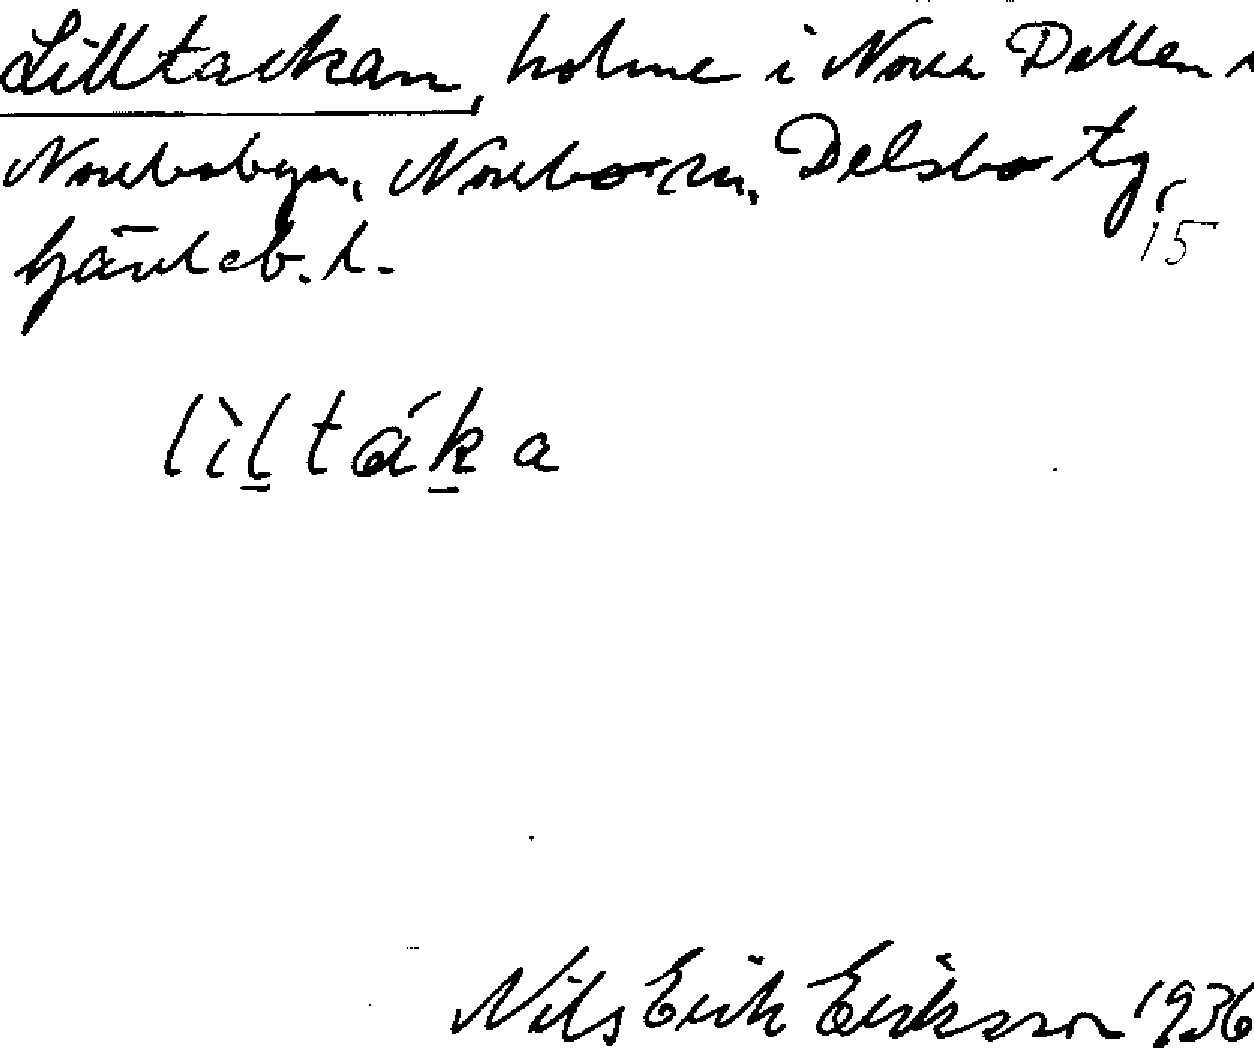 Lilltackan, holme i Norra Dellen i
Norrbobyn, Norrbo sn, Delsbo tg,
Gävleb. l. 15
lìltáka
Nils Erik Eriksson 1936